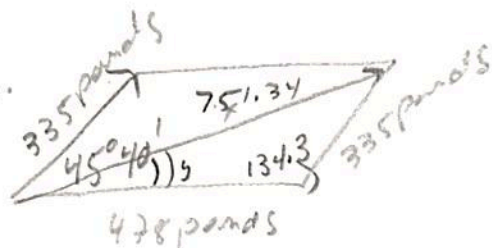 335 pounds
751.34
45°40'
134.3
335 pounds
478 pounds